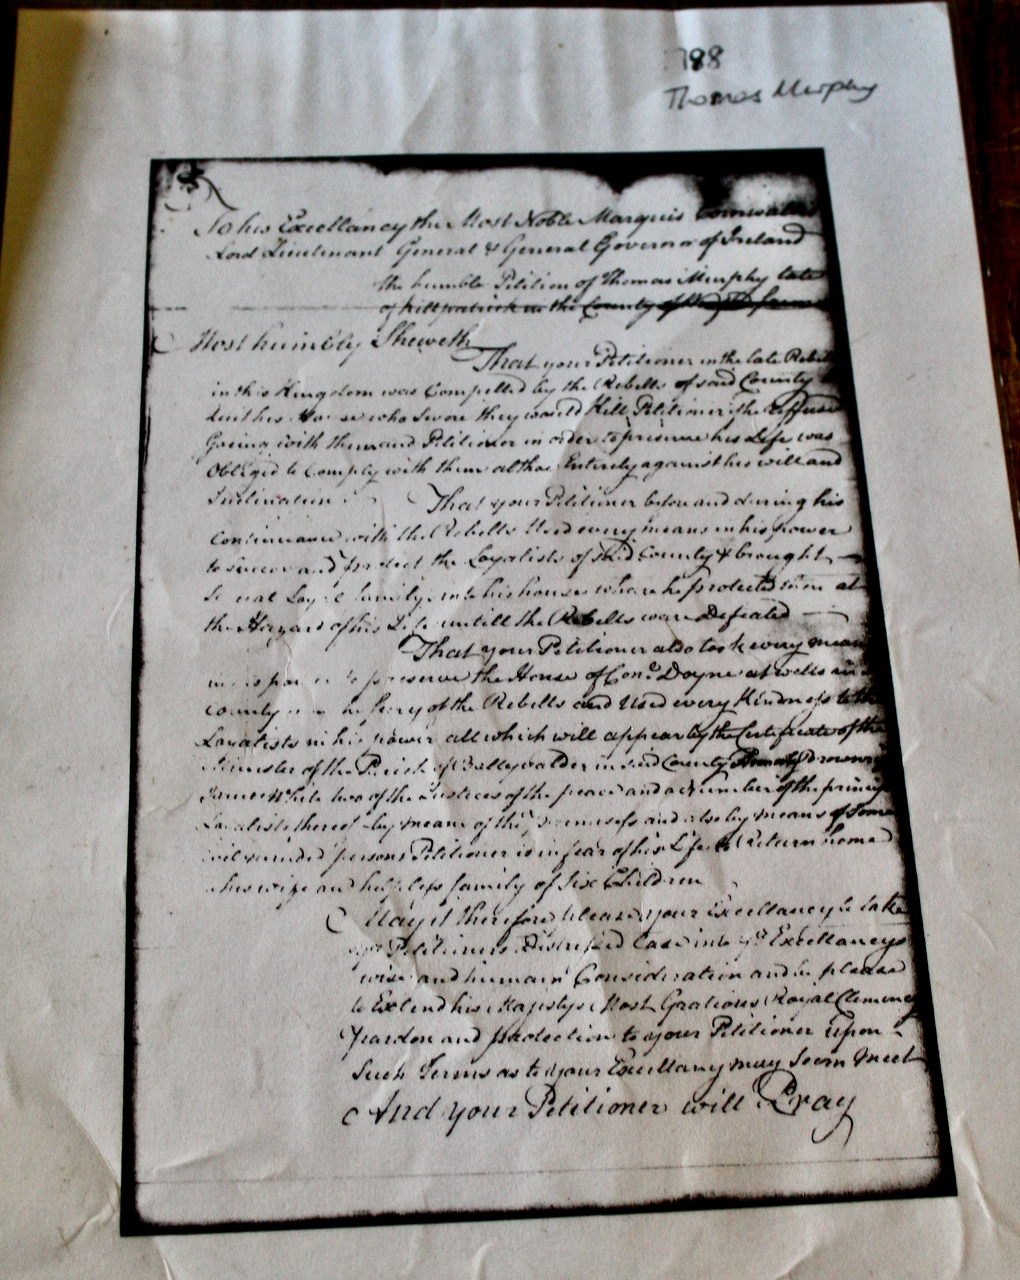 788
Thomas Murphy
To his Excellancy the Most Noble Marquis Cornwallis
Lord Lieutenant General & General Governor of Ireland
the humble Petition of Thomas Murphy late
of Killpatrick in the County of
Most humbly Sheweth
That your Petitioner in the late Rebell
in this Kingdom was Compelled by the Rebells of said County
quit his House who Swore they would Kill Petitioner if he Reffused
Going with them and Petitioner in order to preserve his Life was
Obliged to Comply with them althoe Entirely against his will and
Inclination That your Petitioner before and during his
Continuance with the Rebells Used every means in his power
to and protect the Loyalists of said County & brought
Several Loyal family into his house where he protected them at
the Hazard of his Life untill the Rebells ware Defeated
That your Petitioner also took every mean
in his power to preserve the House of Doyne at wells in
County the fury of the Rebells and Used every Kindness to the
Loyalists in his power all which will appear by the Certificate of the
Minister of the Parish of Ballyvalder in said County
James White two of the Justices of the peace and a Number of the princip
Loyalists thereof by means of the premisess and also by means of Some
evil minded persons Petitioner is in fear of his Life to Return home
his wife and helpless family of Six Children
May it therefore please your Excellancy to take
yr Petitioners Distressed Case into yr Excellancys
wise and humain Consideration and be pleased
to Extend his Majestys Most Gratious Royal Clemency
pardon and protection to your Petitioner upon
Such Terms as to your Excellancy may Seem Meet
And your Petitioner will Pray